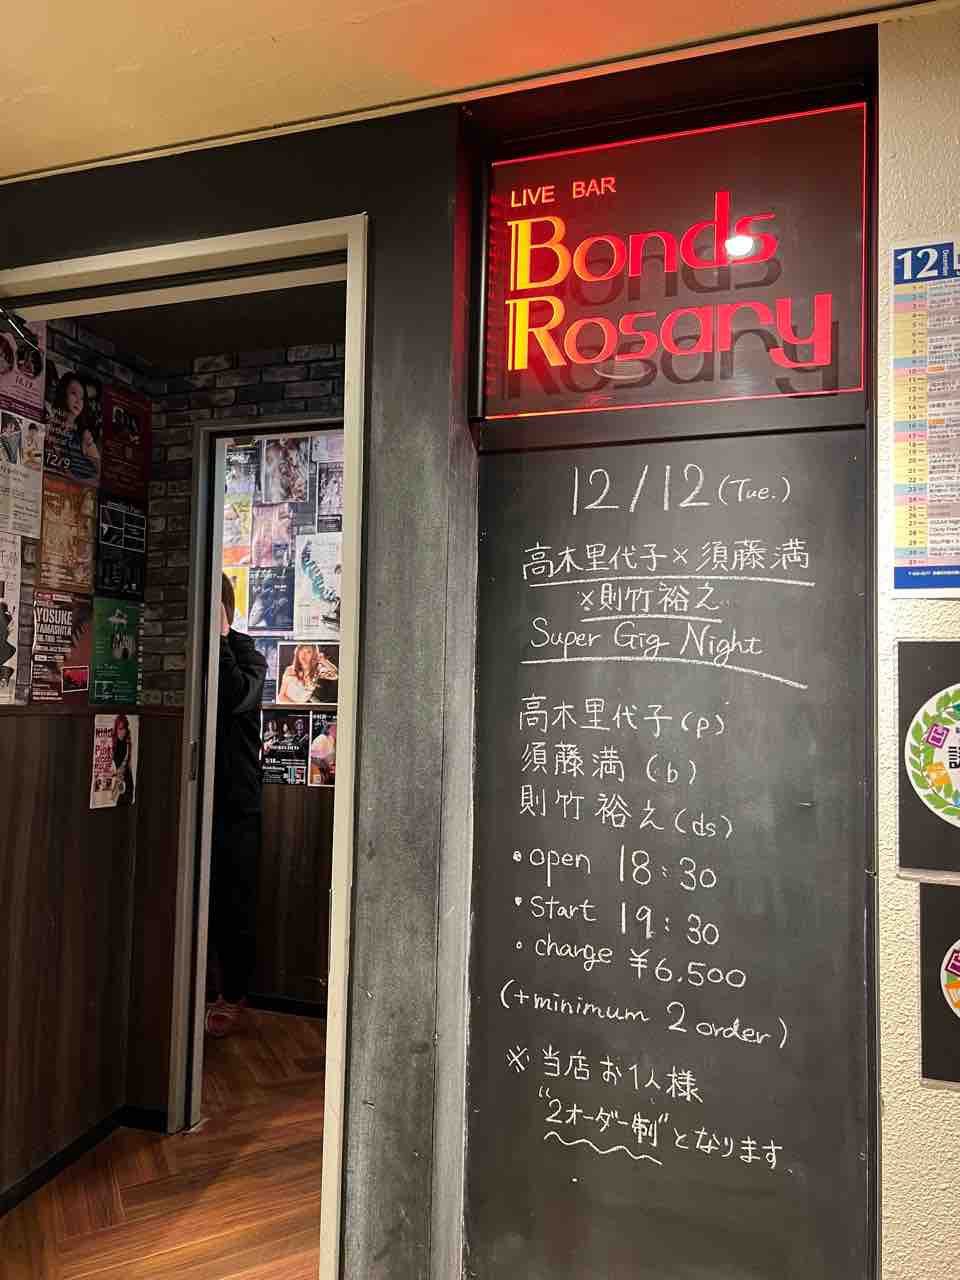 LIVE BAR
Bonds
Rosary
12/12(Tue.)
高木里代子×須藤満
×則竹裕之
Super Gig Night
高木里代子(p)
須藤満(b)
則竹裕之(ds)
・open 18:30
・Start 19:30
・charge ¥6,500
(+minimum 2 order)
※当店お1人様
"2オーダー制"となります.
12
December
12/9
YOSUKE
YAMASHITA